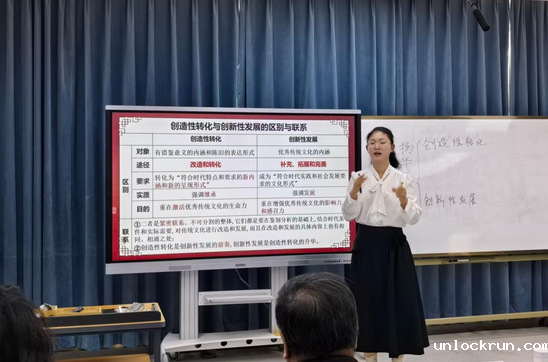 创造性转化与创新性发展的区别与联系
创造性转化 创新性发展
区别
对象 有借鉴意义的内涵和陈旧的表达形式 优秀传统文化的内涵
途径 改造和转化 补充、拓展和完善
要求 转化为“符合时代特点和要求的新内涵和新的呈现形式” 成为“符合时代实践和社会发展要求的文化形式”
实质 强调继承 强调发展
目的 重在激活优秀传统文化的生命力 重在增强优秀传统文化的影响力和感召力
联系
①二者是紧密联系、不可分割的整体,它们都是要在鉴别分析的基础上,结合时代条件和实际需要,对传统文化进行改造和发展,而且在改造和发展的具体内容上也有相同、相通之处;
②创造性转化是创新性发展的前奏,创新性发展是创造性转化的升华。
创造性转化
创新性发展
www.unlockrun.com